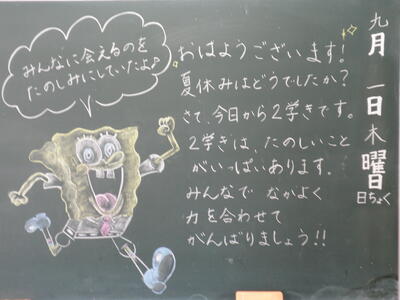 九月一日木曜日
日ちょく
おはようございます!
夏休みはどうでしたか?
さて、今日から2学きです。
2学きは、たのしいこと
がいっぱいあります。
みんなで なかよく
力を合わせて
がんばりましょう!!
みんなに会えるのを
たのしみにしていたよ♪